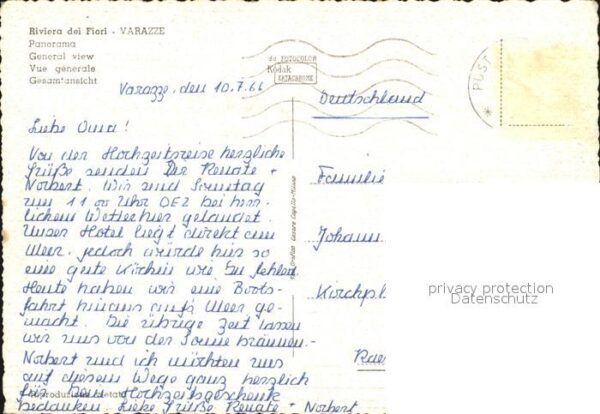 Riviera dei Fiori - VARAZZE
Panorama
General view
Vue générale
Gesamtansicht
da FOTOCOLOR
Kodak
EKTACHROME
POST
Varazze, den 10.7.66
Deutschland
Liebe Oma!
Von der Hochzeitsreise herzliche
Grüße senden Dir Renate +
Norbert. Wir sind Sonntag
um 11 00 Uhr OEZ bei herr-
lichem Wetter hier gelandet.
Unser Hotel liegt direkt am
Meer, jedoch würde hier so
eine gute Köchin wie Du fehlen.
Heute haben wir eine Boots-
fahrt hinaus aufs Meer ge-
macht. Die übrige Zeit lassen
wir uns von der Sonne bräunen.-
Norbert und ich möchten uns
auf diesem Wege ganz herzlich
für Dein Hochzeitsgeschenk
bedanken. Liebe Grüße Renate + Norbert
Familie
Johann
Kirchpl
Riproduzione vietata
privacy protection
Datenschutz